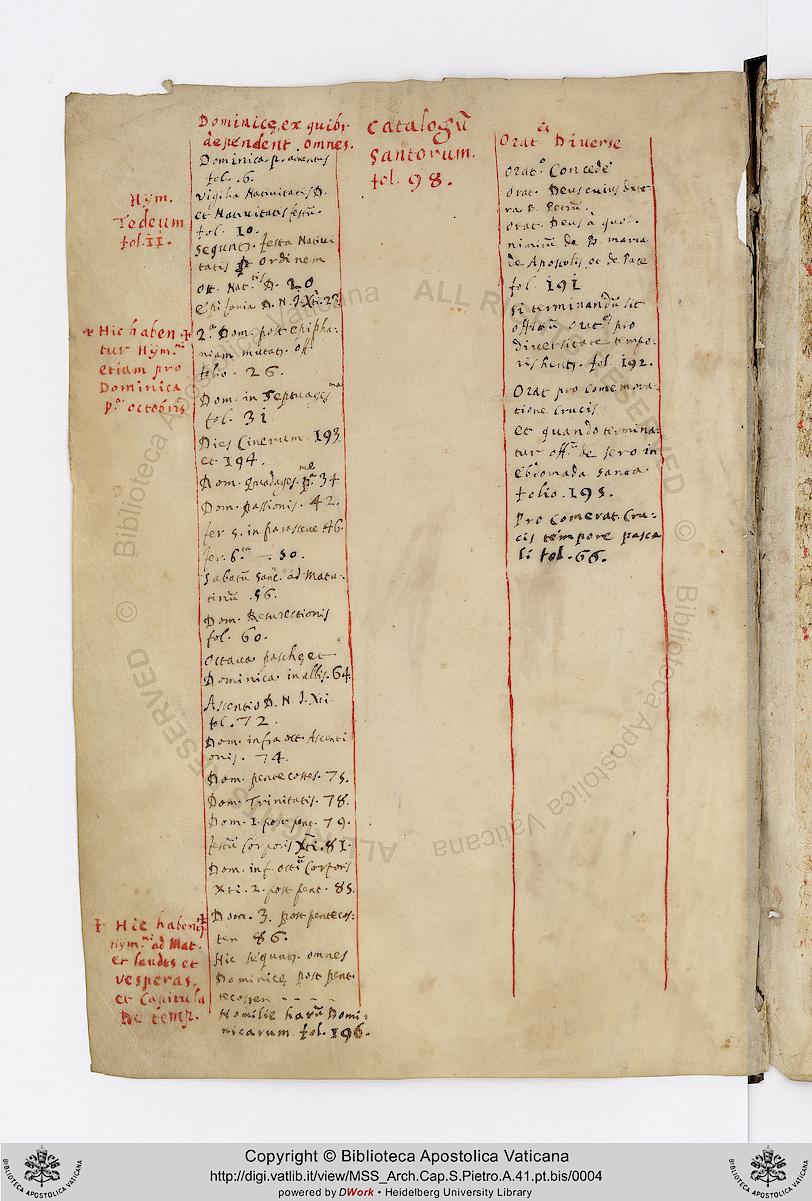 Dominicę, ex quibs
dependent omnes.
Dominica pa. adventus
fol. 6.
Vigilia Nativitatis D.
et Nativitatis festũ.
fol. 10.
Sequntr. festa Nativi
tatis ordinem
Oct. Nattis D. 20
Epifania D. N. J. Xti. 23
2.a Dom. post epipha-
niam mutatr. off.
folio . 26 .
Dom. in Septuagesma
fol. 31
Dies Cinerum . 193.
et 194.
Dom. Quadages.me pa. 34
Dom. passionis. 42.
fer. 5. in parasceve 46.
fer. 6.ta — . 50 .
Sabatũ Sanc. ad Matu-
tinũ . 56.
Dom. Resurectionis
fol. 60.
Octava paschę et
Dominica in albis. 64.
Ascentio D. N. J. Xti
fol . 72 .
Dom. infra oct. Ascenti
onis. 74.
Dom. pentecostes. 75.
Dom. Trinitatis. 78.
Dom. 1. post pent. 79.
festũ Corporis Xti. 81.
Dom. inf. Corporis
Xti. 2. post pent. 85.
Dom. 3. post pentecos-
ten 86.
Hic sequntr. omnes
Dominicę post pent-
tecosten - - - -
Homilie harũ Domi-
nicarum fol. 196.
Hym.
Tedeum
fol. II.
+ Hic haben +
tur Hym.ni
etiam pro
Dominica
pa. octobris
+ Hic habentr +
Hym.ni ad Mat.
et laudes et
vesperas.
et Capitula
De temp.
Catalogũ
Santorum.
fol. 98.
Orates Diverse
Orat.o Concede
orat. Deus cuius dexte
ra B. Petrũ.
orat. Deus à quo.
B. maria
de Apostolis, et de Pace
fol. 191
Si terminandũ sit
offitiũ orat. pro
diversitate tempo-
ris hentr. fol. 192.
Orat pro Comemora-
tione Crucis
et quando termina-
tur off.m de sero in
ebdomada Santa.
folio . 195 .
Pro Comerat. Cru-
cis tempore pasca
li fol . 66 .
© Biblioteca Apostolica Vaticana ALL RIGHTS RESERVED © Biblioteca Apostolica Vaticana ALL RIGHTS RESERVED
Copyright © Biblioteca Apostolica Vaticana
http://digi.vatlib.it/view/MSS_Arch.Cap.S.Pietro.A.41.pt.bis/0004
powered by DWork • Heidelberg University Library
BIBLIOTECA APOSTOLICA VATICANA
BIBLIOTECA APOSTOLICA VATICANA